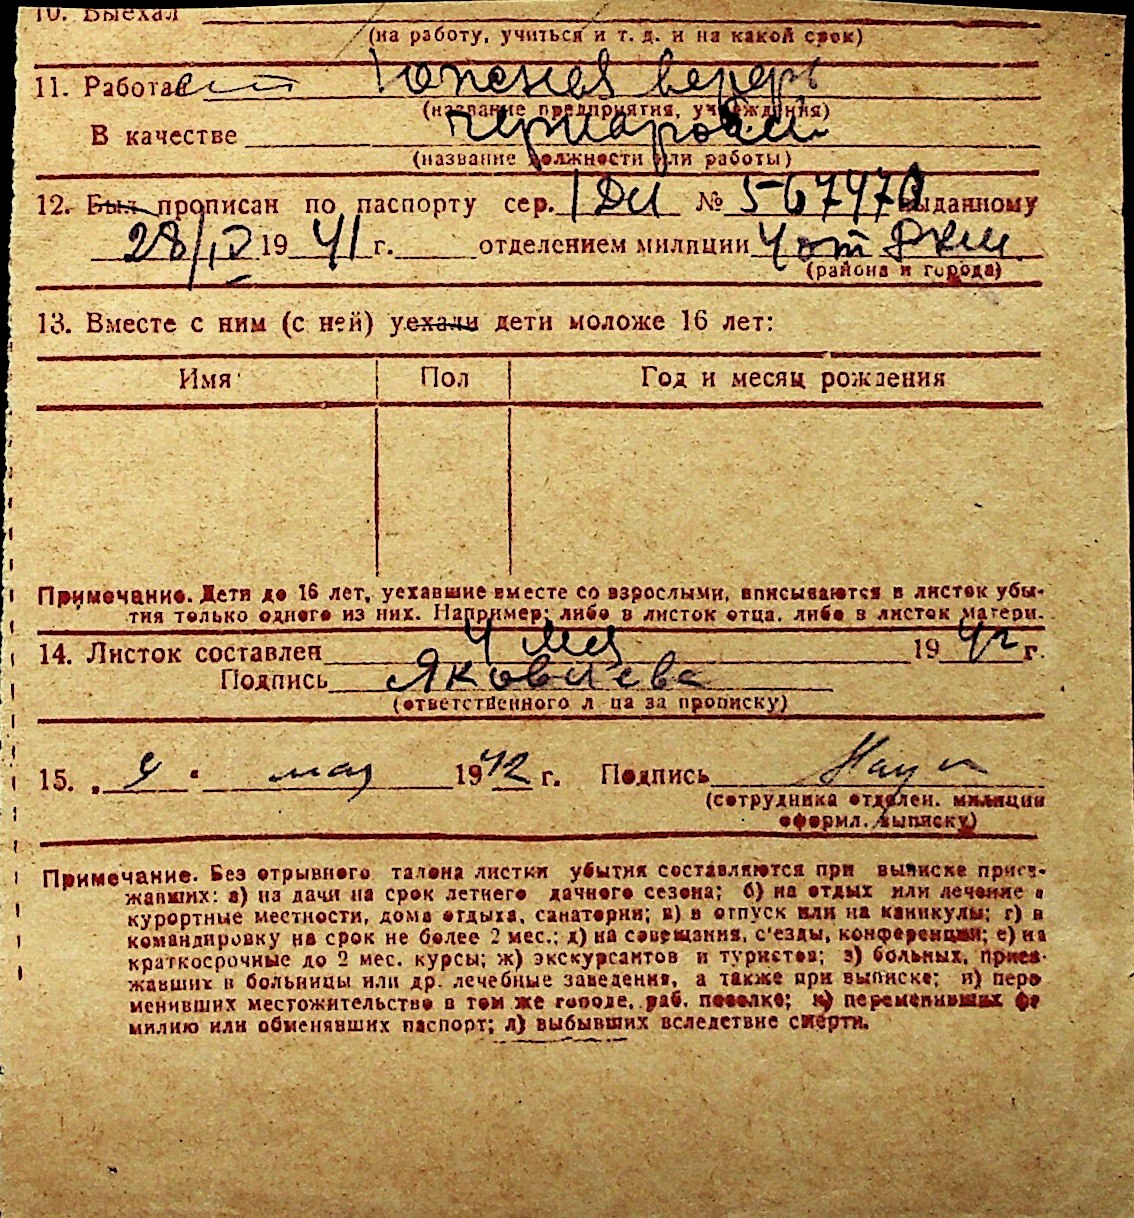 10. Выехал
(на работу, учиться и т. д. и на какой срок)
11. Работает
(название предприятия, учреждения)
В качестве
(название должности или работы)
12. Был прописан по паспорту сер. № 567470 выданному
28/IV 1941 г. отделением милиции 4 от РКМ
(района и города)
13. Вместе с ним (с ней) уехали дети моложе 16 лет:
Имя Пол Год и месяц рождения
Примечание. Дети до 16 лет, уехавшие вместе со взрослыми, вписываются в листок убы-
тия только одного из них. Например: либо в листок отца, либо в листок матери.
14. Листок составлен 4 мая 1942 г.
Подпись Яковлева
(ответственного лица за прописку)
15. „ 4 “ мая 1942 г. Подпись
(сотрудника отделен. милиции
оформл. выписку)
Примечание. Без отрывного талона листки убытия составляются при выписке приез-
жавших: а) на дачи на срок летнего дачного сезона; б) на отдых или лечение в
курортные местности, дома отдыха, санатории; в) в отпуск или на каникулы; г) в
командировку на срок не более 2 мес.; д) на совещания, с'езды, конференции; е) на
краткосрочные до 2 мес. курсы; ж) экскурсантов и туристов; з) больных, приез-
жавших в больницы или др. лечебные заведения, а также при выписке; и) пере
менивших местожительство в том же городе, раб. поселке; к) переменивших фа
милию или обменявших паспорт; л) выбывших вследствие смерти.